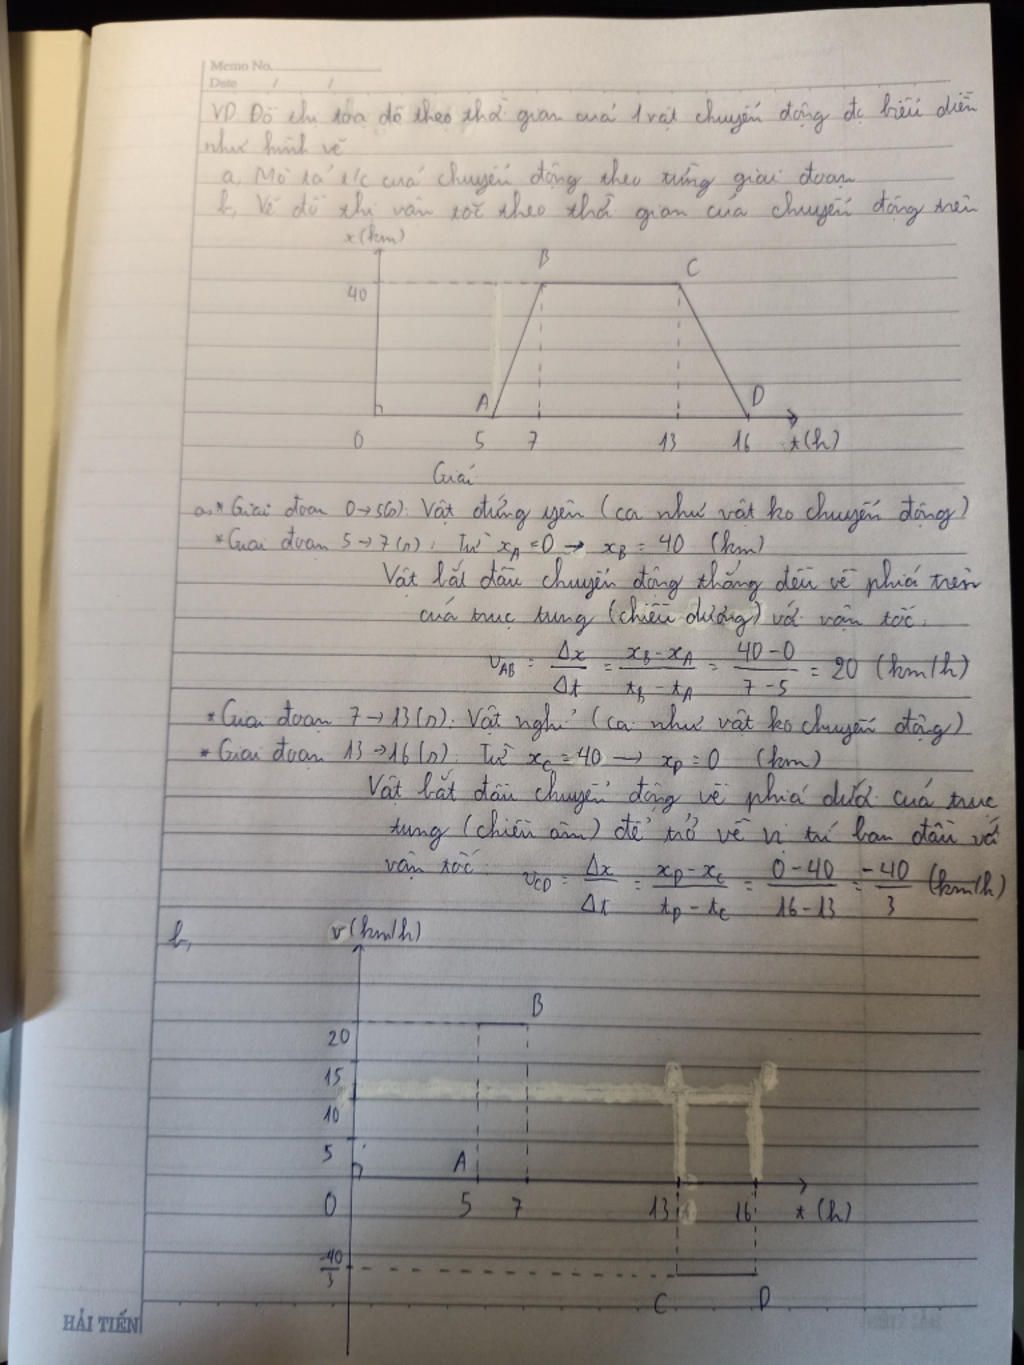 Memo No.
Date / /
VD. Đồ thị tọa độ theo thời gian của 1 vật chuyển động đc biểu diễn
như hình vẽ
a, Mô tả t/c của chuyển động theo từng giai đoạn
b, Vẽ đồ thị vận tốc theo thời gian của chuyển động trên
x(km)
B
C
40
A
D
0 5 7 13 16 t(h)
Giải
a, * Giai đoạn 0→5(h): Vật đứng yên (coi như vật ko chuyển động)
* Giai đoạn 5→7(h): Từ x_A = 0 → x_B = 40 (km)
Vật bắt đầu chuyển động thẳng đều về phía trên
của trục tung (chiều dương) với vận tốc:
v_AB = Δx/Δt = (x_B - x_A)/(t_B - t_A) = (40-0)/(7-5) = 20 (km/h)
* Giai đoạn 7→13(h): Vật nghỉ (coi như vật ko chuyển động)
* Giai đoạn 13→16(h): Từ x_C = 40 → x_D = 0 (km)
Vật bắt đầu chuyển động về phía dưới của trục
tung (chiều âm) để trở về vị trí ban đầu với
vận tốc: v_CD = Δx/Δt = (x_D - x_C)/(t_D - t_C) = (0-40)/(16-13) = -40/3 (km/h)
b, v(km/h)
B
20
15
10
5
A
0 5 7 13 16 t(h)
-40/3
C D
HẢI TIẾN